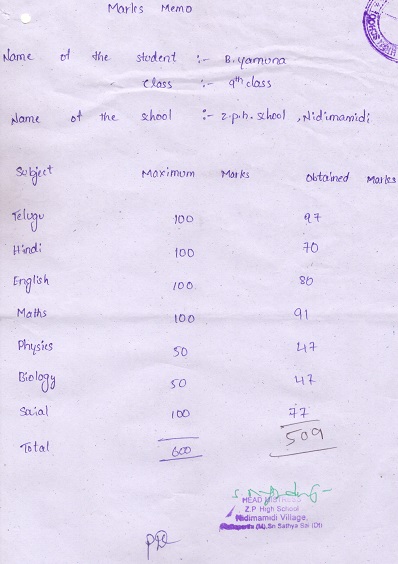 Marks Memo
Name of the student :- B. yamuna
Class :- 9th class
Name of the school :- z.p.h. school, Nidimamidi
Subject Maximum Marks Obtained Marks
Telugu 100 97
Hindi 100 70
English 100 80
Maths 100 91
Physics 50 47
Biology 50 47
Soial 100 77
Total 600 509
HEAD MISTRESS
Z.P High School
Nidimamidi Village,
(M), Sri Sathya Sai (Dt)